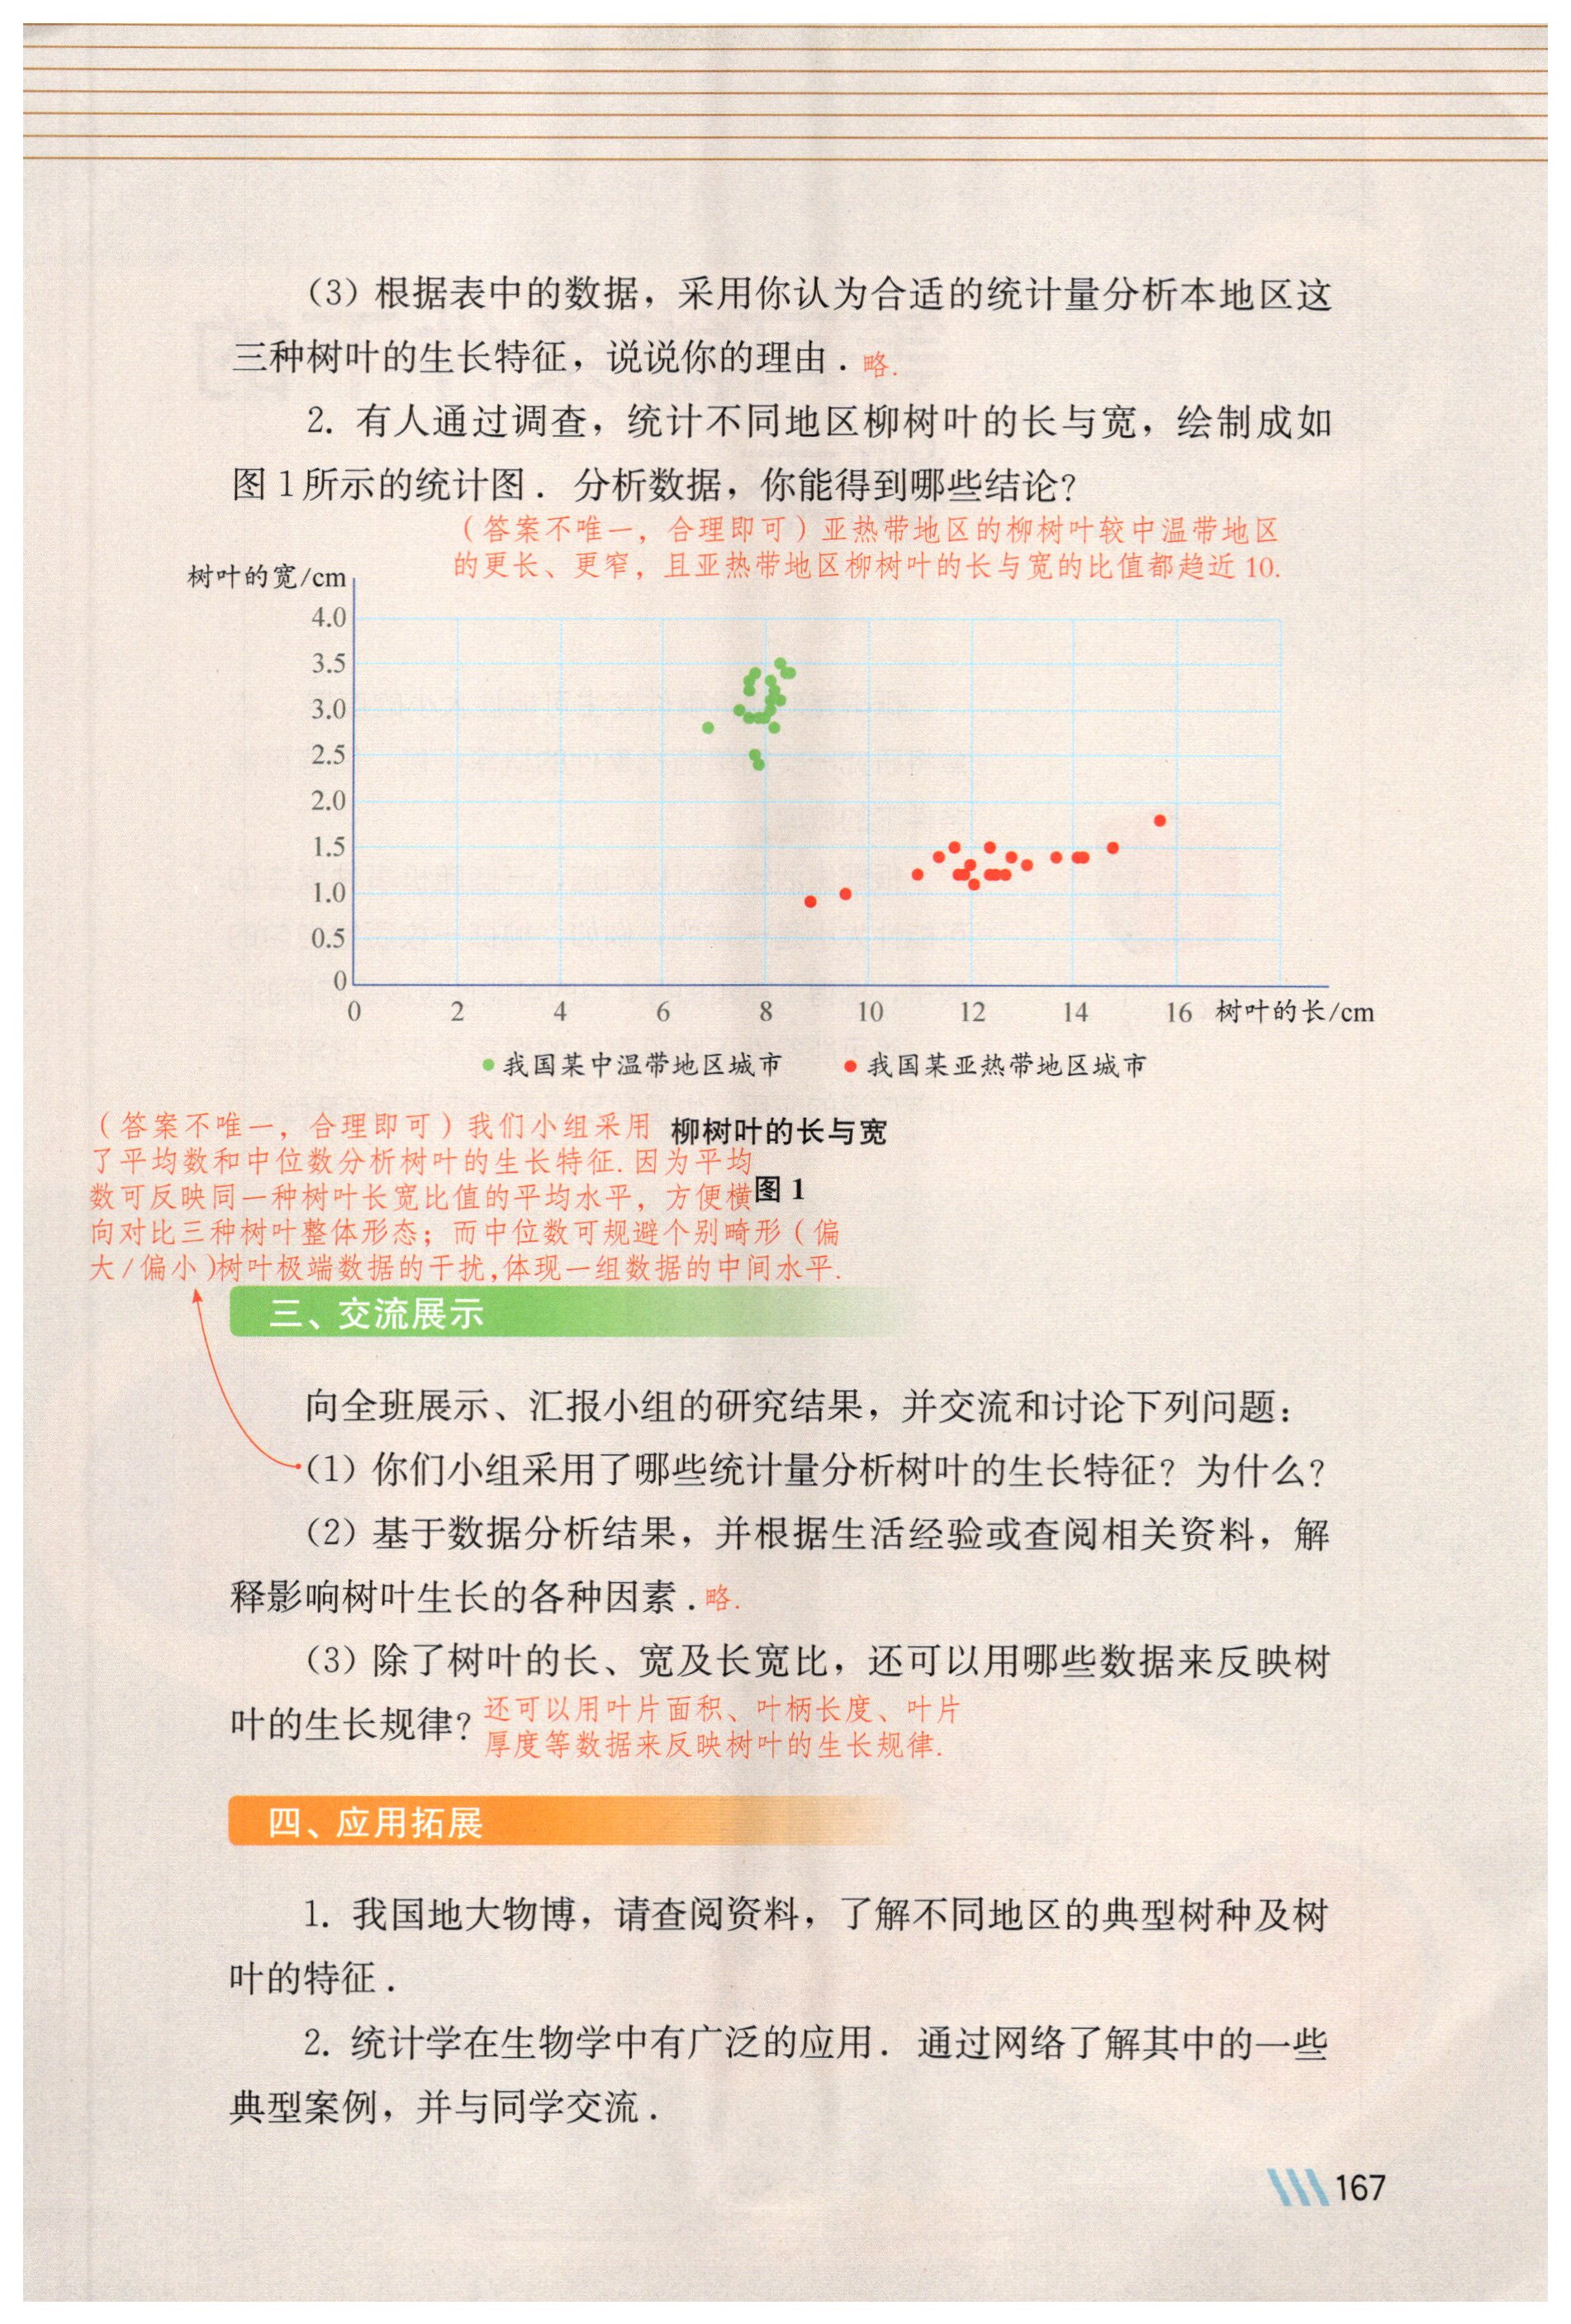 （3）根据表中的数据，采用你认为合适的统计量分析本地区这
三种树叶的生长特征，说说你的理由．略.
2. 有人通过调查，统计不同地区柳树叶的长与宽，绘制成如
图1所示的统计图．分析数据，你能得到哪些结论？
（答案不唯一，合理即可）亚热带地区的柳树叶较中温带地区
的更长、更窄，且亚热带地区柳树叶的长与宽的比值都趋近 10.
树叶的宽/cm
4.0
3.5
3.0
2.5
2.0
1.5
1.0
0.5
0
0 2 4 6 8 10 12 14 16 树叶的长/cm
我国某中温带地区城市 我国某亚热带地区城市
柳树叶的长与宽
图 1
（答案不唯一，合理即可）我们小组采用
了平均数和中位数分析树叶的生长特征.因为平均
数可反映同一种树叶长宽比值的平均水平，方便横
向对比三种树叶整体形态；而中位数可规避个别畸形（偏
大/偏小）树叶极端数据的干扰,体现一组数据的中间水平.
三、交流展示
向全班展示、汇报小组的研究结果，并交流和讨论下列问题：
（1）你们小组采用了哪些统计量分析树叶的生长特征？为什么？
（2）基于数据分析结果，并根据生活经验或查阅相关资料，解
释影响树叶生长的各种因素．略.
（3）除了树叶的长、宽及长宽比，还可以用哪些数据来反映树
叶的生长规律？
还可以用叶片面积、叶柄长度、叶片
厚度等数据来反映树叶的生长规律.
四、应用拓展
1. 我国地大物博，请查阅资料，了解不同地区的典型树种及树
叶的特征．
2. 统计学在生物学中有广泛的应用．通过网络了解其中的一些
典型案例，并与同学交流．
167